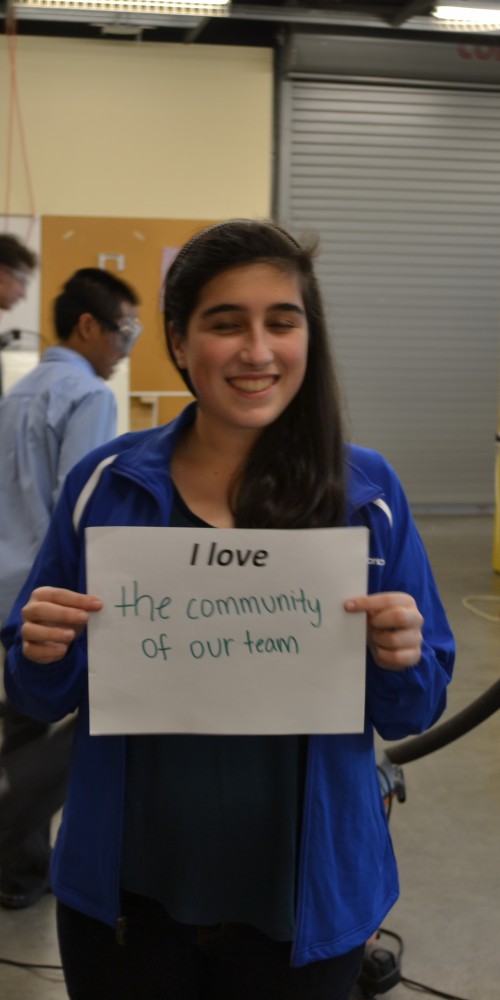 I love
the community
of our team